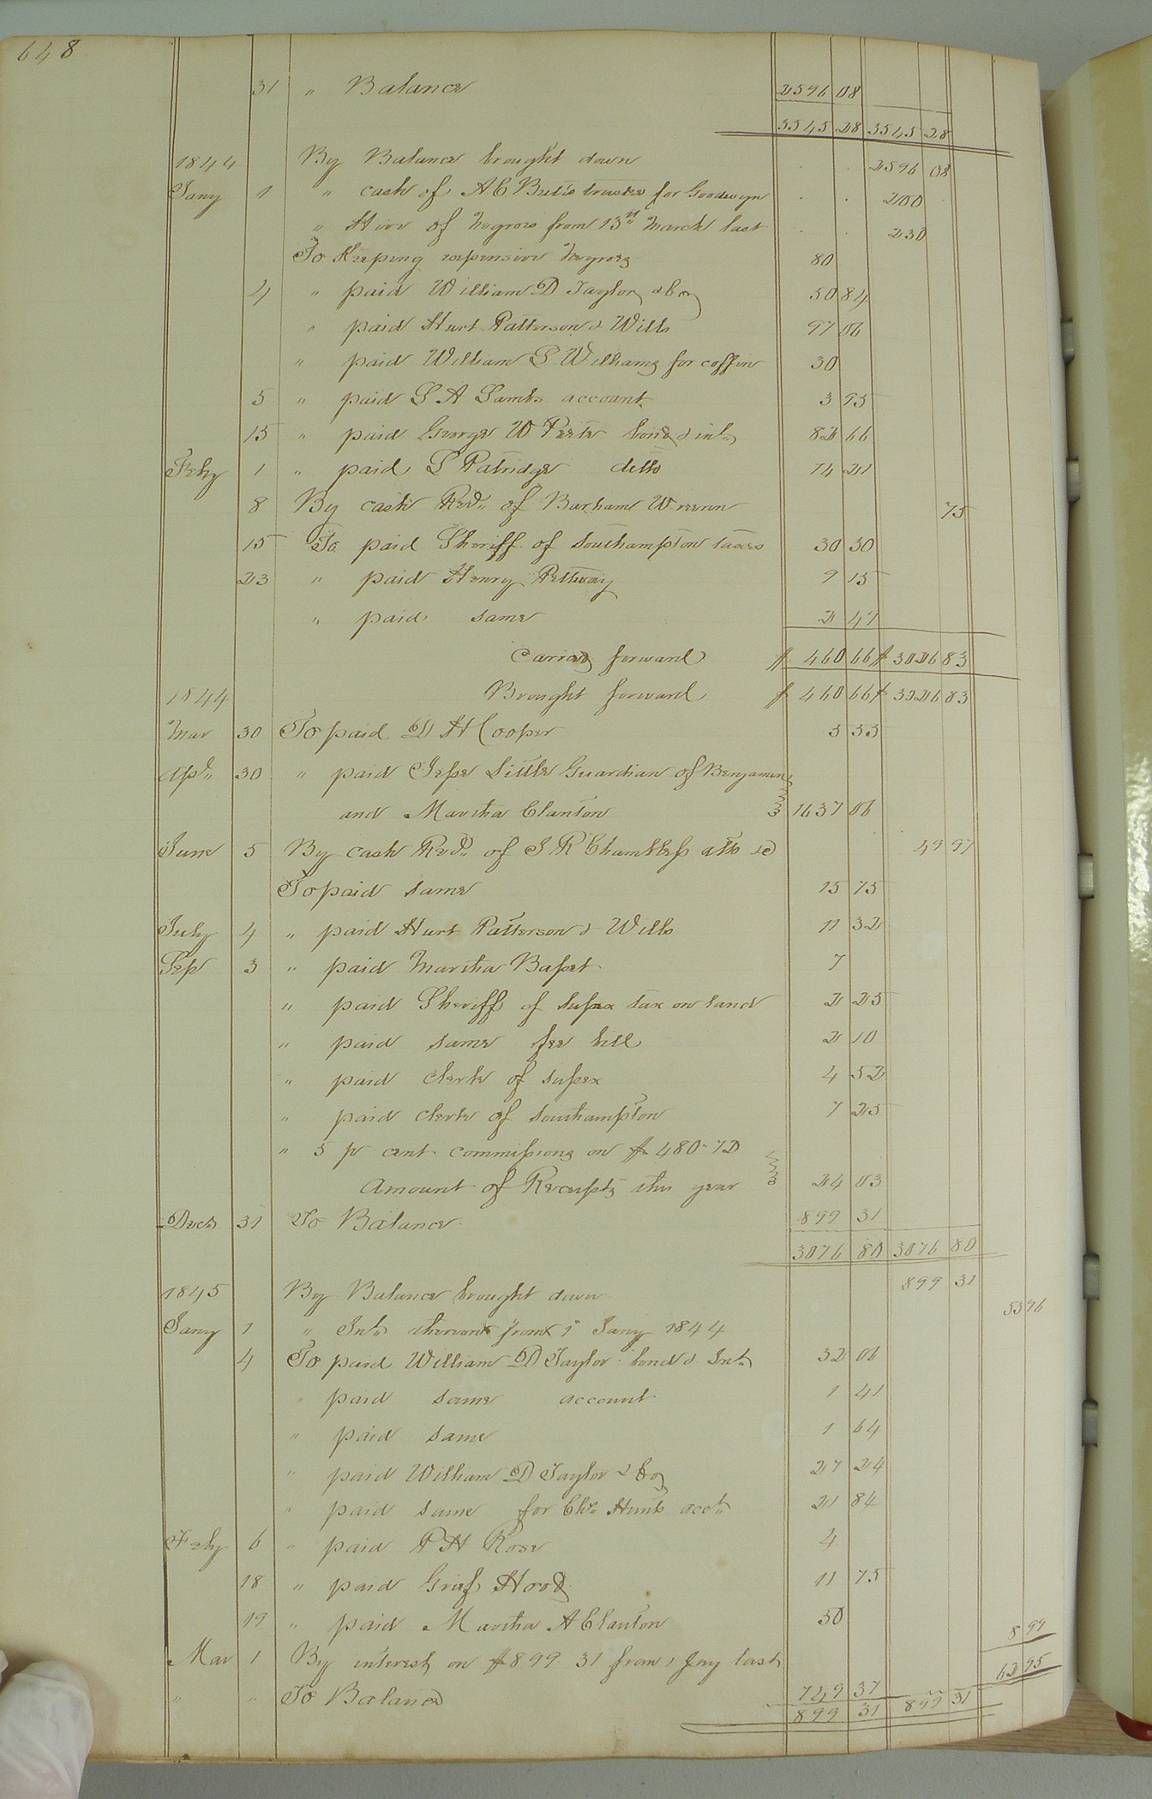 648
31 " Balance 2596 08
3545 28 3545 28
1844 By Balance brought down 2596 08
Jany 1 " cash of A C Butts trustee for Goodwyn 200
" Hire of Negroes from 13th March last 230
To Keeping expensive Negroes 80
4 " paid William D Taylor & Co 50 84
" paid Hurt Patterson & Wills 97 06
" paid William S Williams for coffin 30
5 " paid S A Lambs account 3 95
15 " paid George W Peete bond & int 82 66
Feby 1 " paid S Patridge ditto 74 21
8 By cash Recd. of Barham Wrenn 75
15 To paid Sheriff of Southampton taxes 30 30
23 " paid Henry Pettway 9 15
" paid same 2 49
Caried forward $ 460 66 $ 3026 83
1844 Brought forward $ 460 66 $ 3026 83
Mar 30 To paid D H Cooper 3 33
Apl. 30 " paid Jesse Little Guardian of Benjamin
and Martha Clanton 1637 06
June 5 By cash Recd. of J R Chambless atto &c 49 97
To paid same 15 75
July 4 " paid Hurt Patterson & Wills 11 32
Sep 3 " paid Martha Basset 7
" paid Sheriff of Sussex tax on land 2 25
" paid same fee bill 2 10
" paid clerk of Sussex 4 52
" paid clerk of Southampton 7 25
" 5 pr cent commissions on $480.72
Amount of Receipts this year 24 03
Decr 31 To Balance 899 31
3076 80 3076 80
1845 By Balance brought down 899 31
Jany 1 " Int thereon from 1 Jany 1844 5396
4 To paid William D Taylor bond & Int 32 06
" paid same account 1 41
" paid same 1 64
" paid William D Taylor & Co 27 24
" paid same for Chs. Hunts acct 21 84
Feby 6 " paid P H Rose 4
18 " paid Hood 11 75
19 " paid Martha A Clanton 50
Mar 1 By interest on $899 31 from 1 Jny last 8 99
62 95
" " To Balance 749 37
899 31 899 31